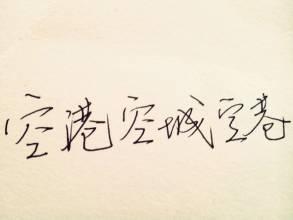 空港空城空巷